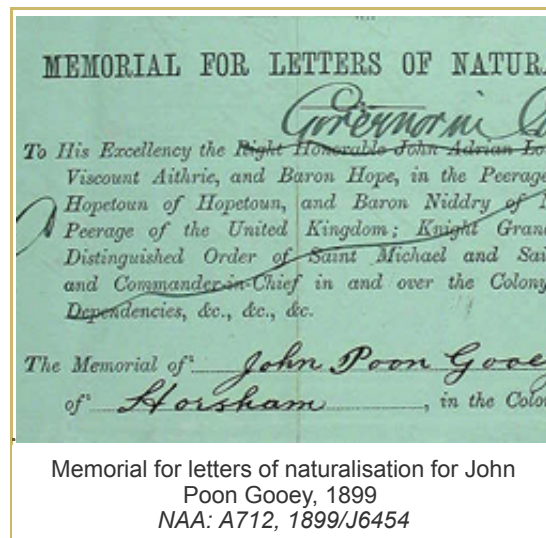 MEMORIAL FOR LETTERS OF NATUR
Governor in
To His Excellency the Right Honorable John Adrian Lo
Viscount Aithrie, and Baron Hope, in the Peerage
Hopetoun of Hopetoun, and Baron Niddry of
Peerage of the United Kingdom; Knight Gran
Distinguished Order of Saint Michael and Sai
and Commander-in-Chief in and over the Colony
Dependencies, &c., &c., &c.
The Memorial of John Poon Gooey
of Horsham, in the Colo
Memorial for letters of naturalisation for John
Poon Gooey, 1899
NAA: A712, 1899/J6454